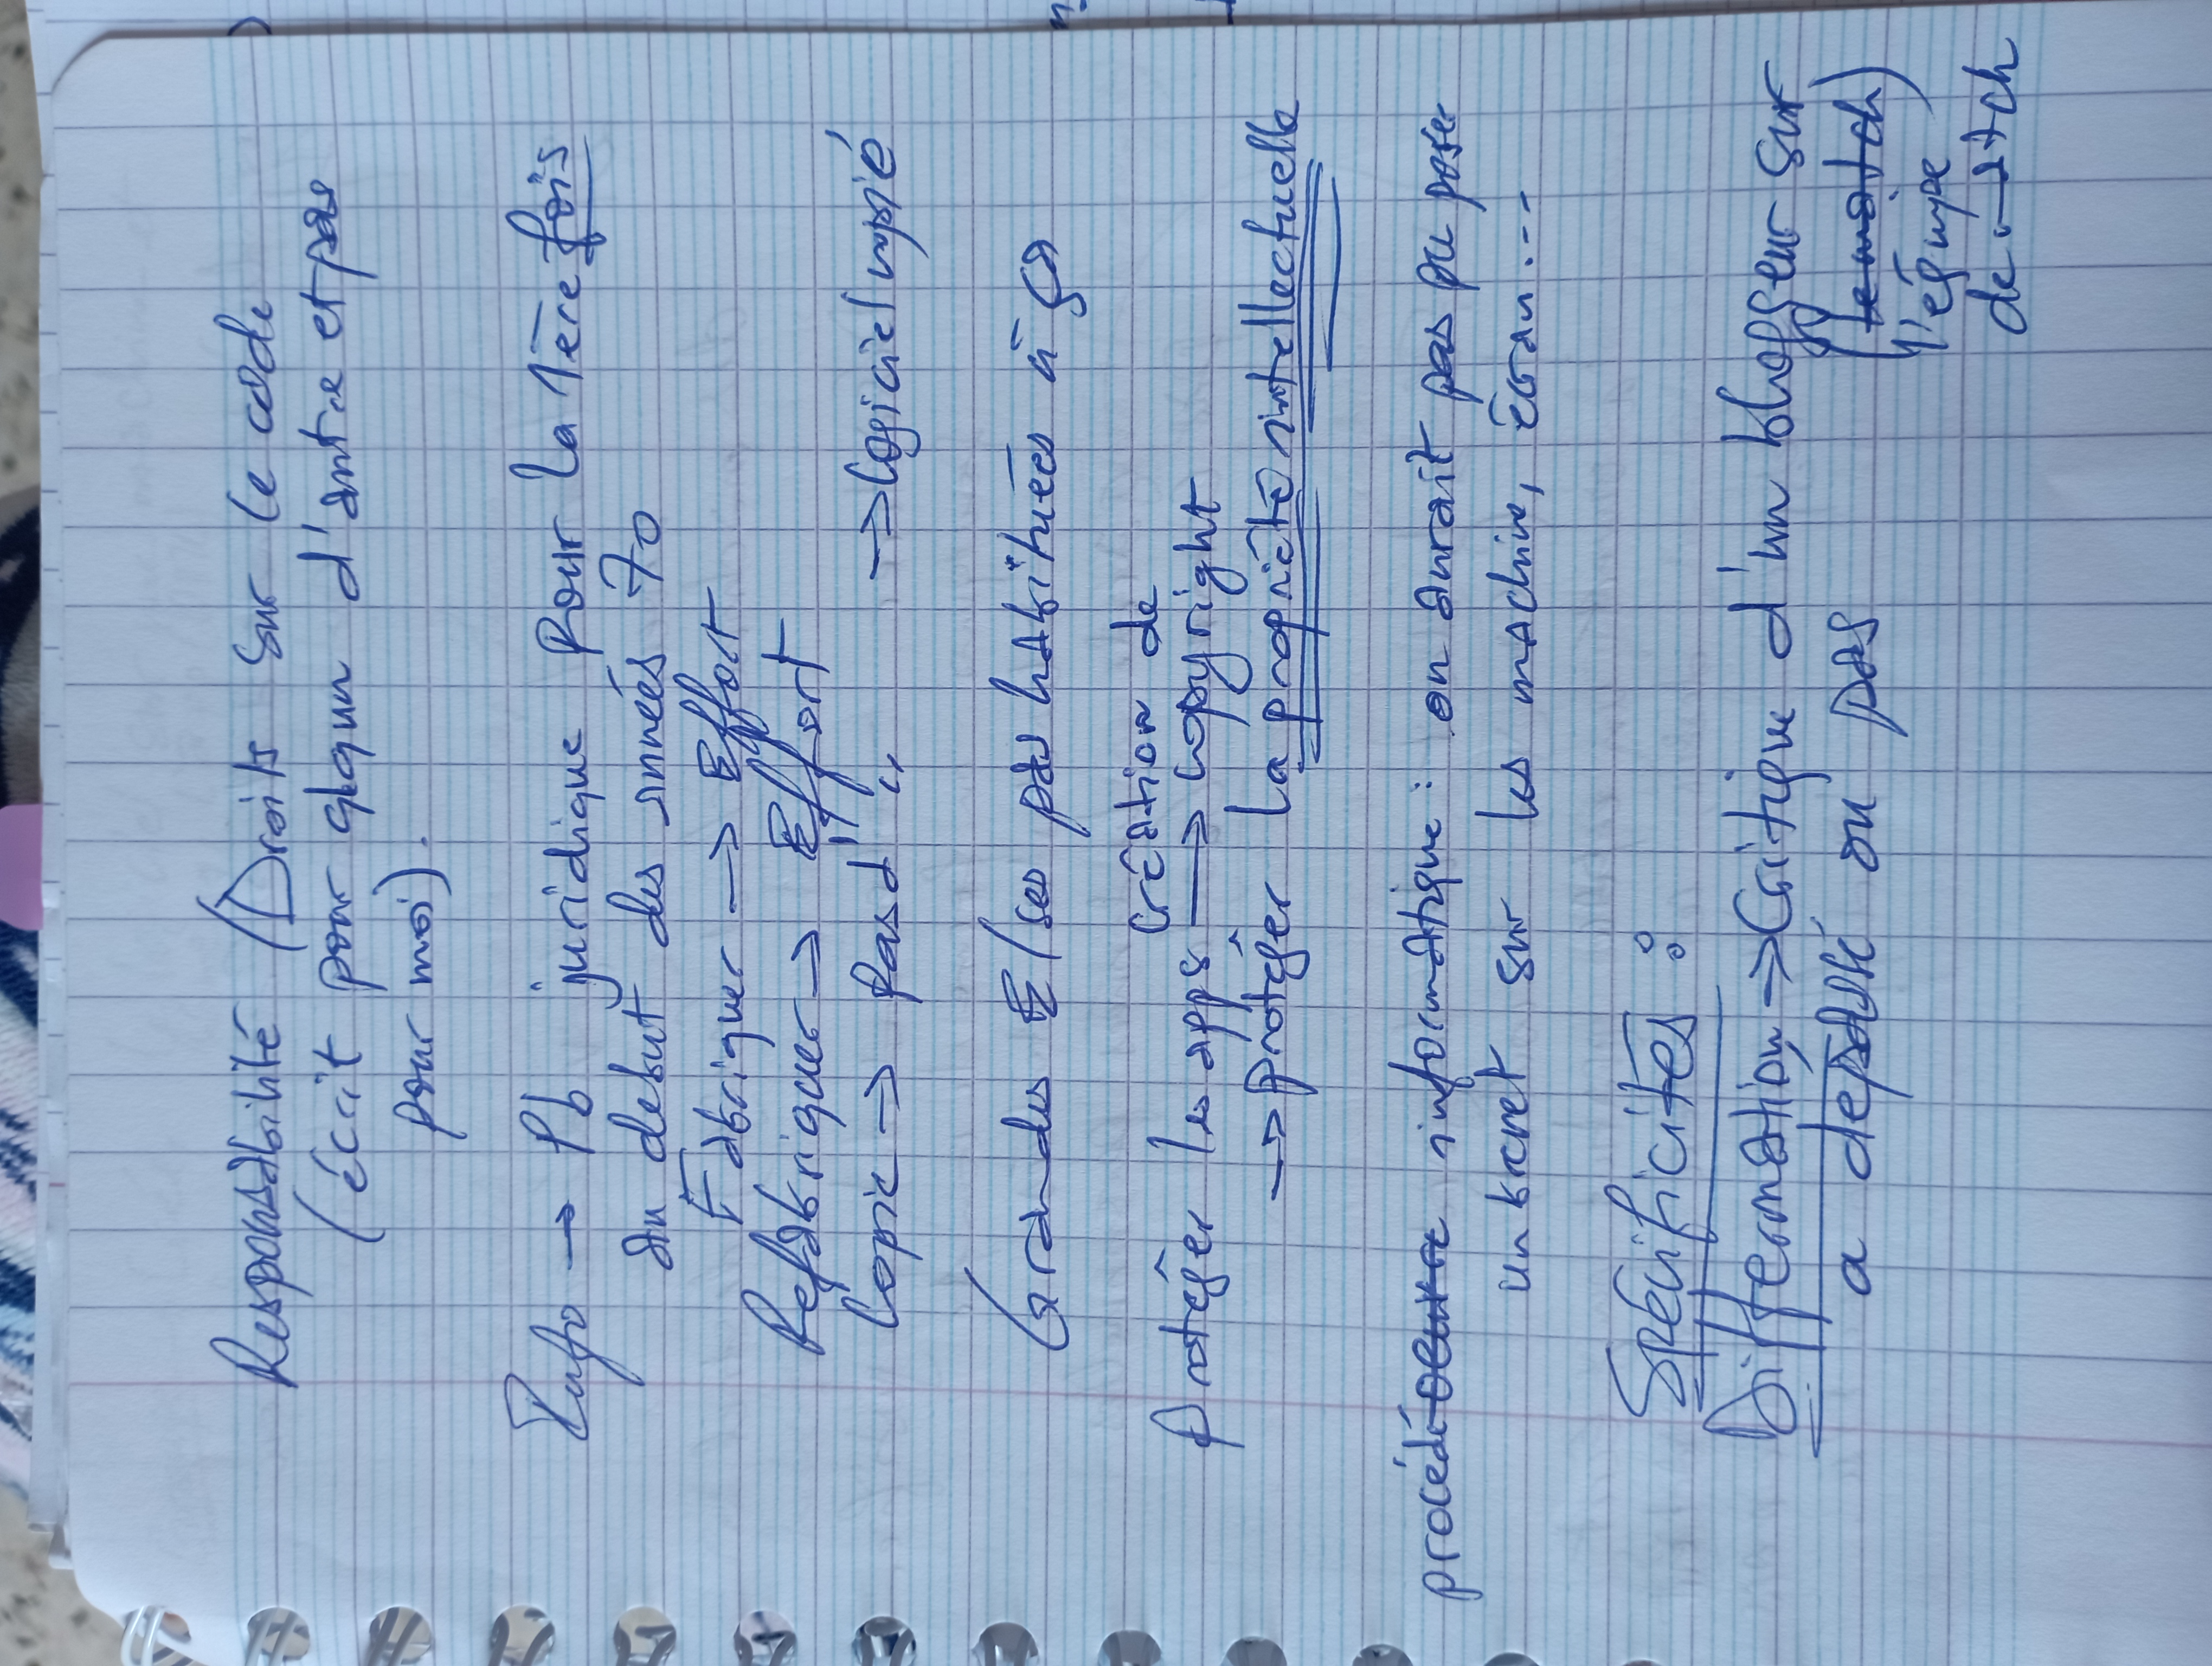 Responsabilité / Droits sur le code
(écrit pour qlqun d'autre et pas
pour moi).
Info → Pb juridique pour la 1ère fois
au debut des années 70
Fabriquer → Effort
Refabriquer → Effort
Copie → Pas d' " → logiciel copié
Grandes E/ses pas habituées à ça
création de
protéger les apps → copyright
→ protéger la propriété intellectuelle
procédé oeuvre informatique : on aurait pas pu poser
un brevet sur les machine, écran...
Spécificités :
Differmation → Critique d'un bloggeur sur
a dépassé ou pas (le match)
l'équipe
de match